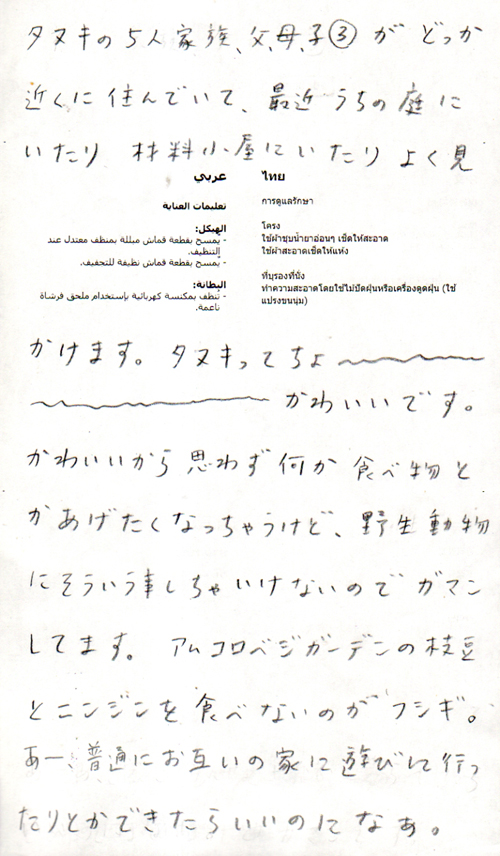 タヌキの5人家族、父、母、子③がどっか
近くに住んでいて、最近うちの庭に
いたり材料小屋にいたりよく見
عربي
تعليمات العناية
الهيكل:
- يمسح بقطعة قماش مبللة بمنظف معتدل عند
التنظيف.
- يمسح بقطعة قماش نظيفة للتجفيف.
البطانة:
- تنظف بمكنسة كهربائية بإستخدام ملحق فرشاة
ناعمة.
ไทย
การดูแลรักษา
โครง
ใช้ผ้าชุบน้ำยาอ่อนๆ เช็ดให้สะอาด
ใช้ผ้าสะอาดเช็ดให้แห้ง
ที่บุรองที่นั่ง
ทำความสะอาดโดยใช้ไม้ปัดฝุ่นหรือเครื่องดูดฝุ่น (ใช้
แปรงขนนุ่ม)
かけます。タヌキってちょ
かわいいです。
かわいいから思わず何か食べ物と
かあげたくなっちゃうけど、野生動物
にそういう事しちゃいけないのでガマン
してます。アムコロベジガーデンの枝豆
とニンジンを食べないのがフシギ。
あー、普通にお互いの家に遊びに行っ
たりとかできたらいいのになぁ。